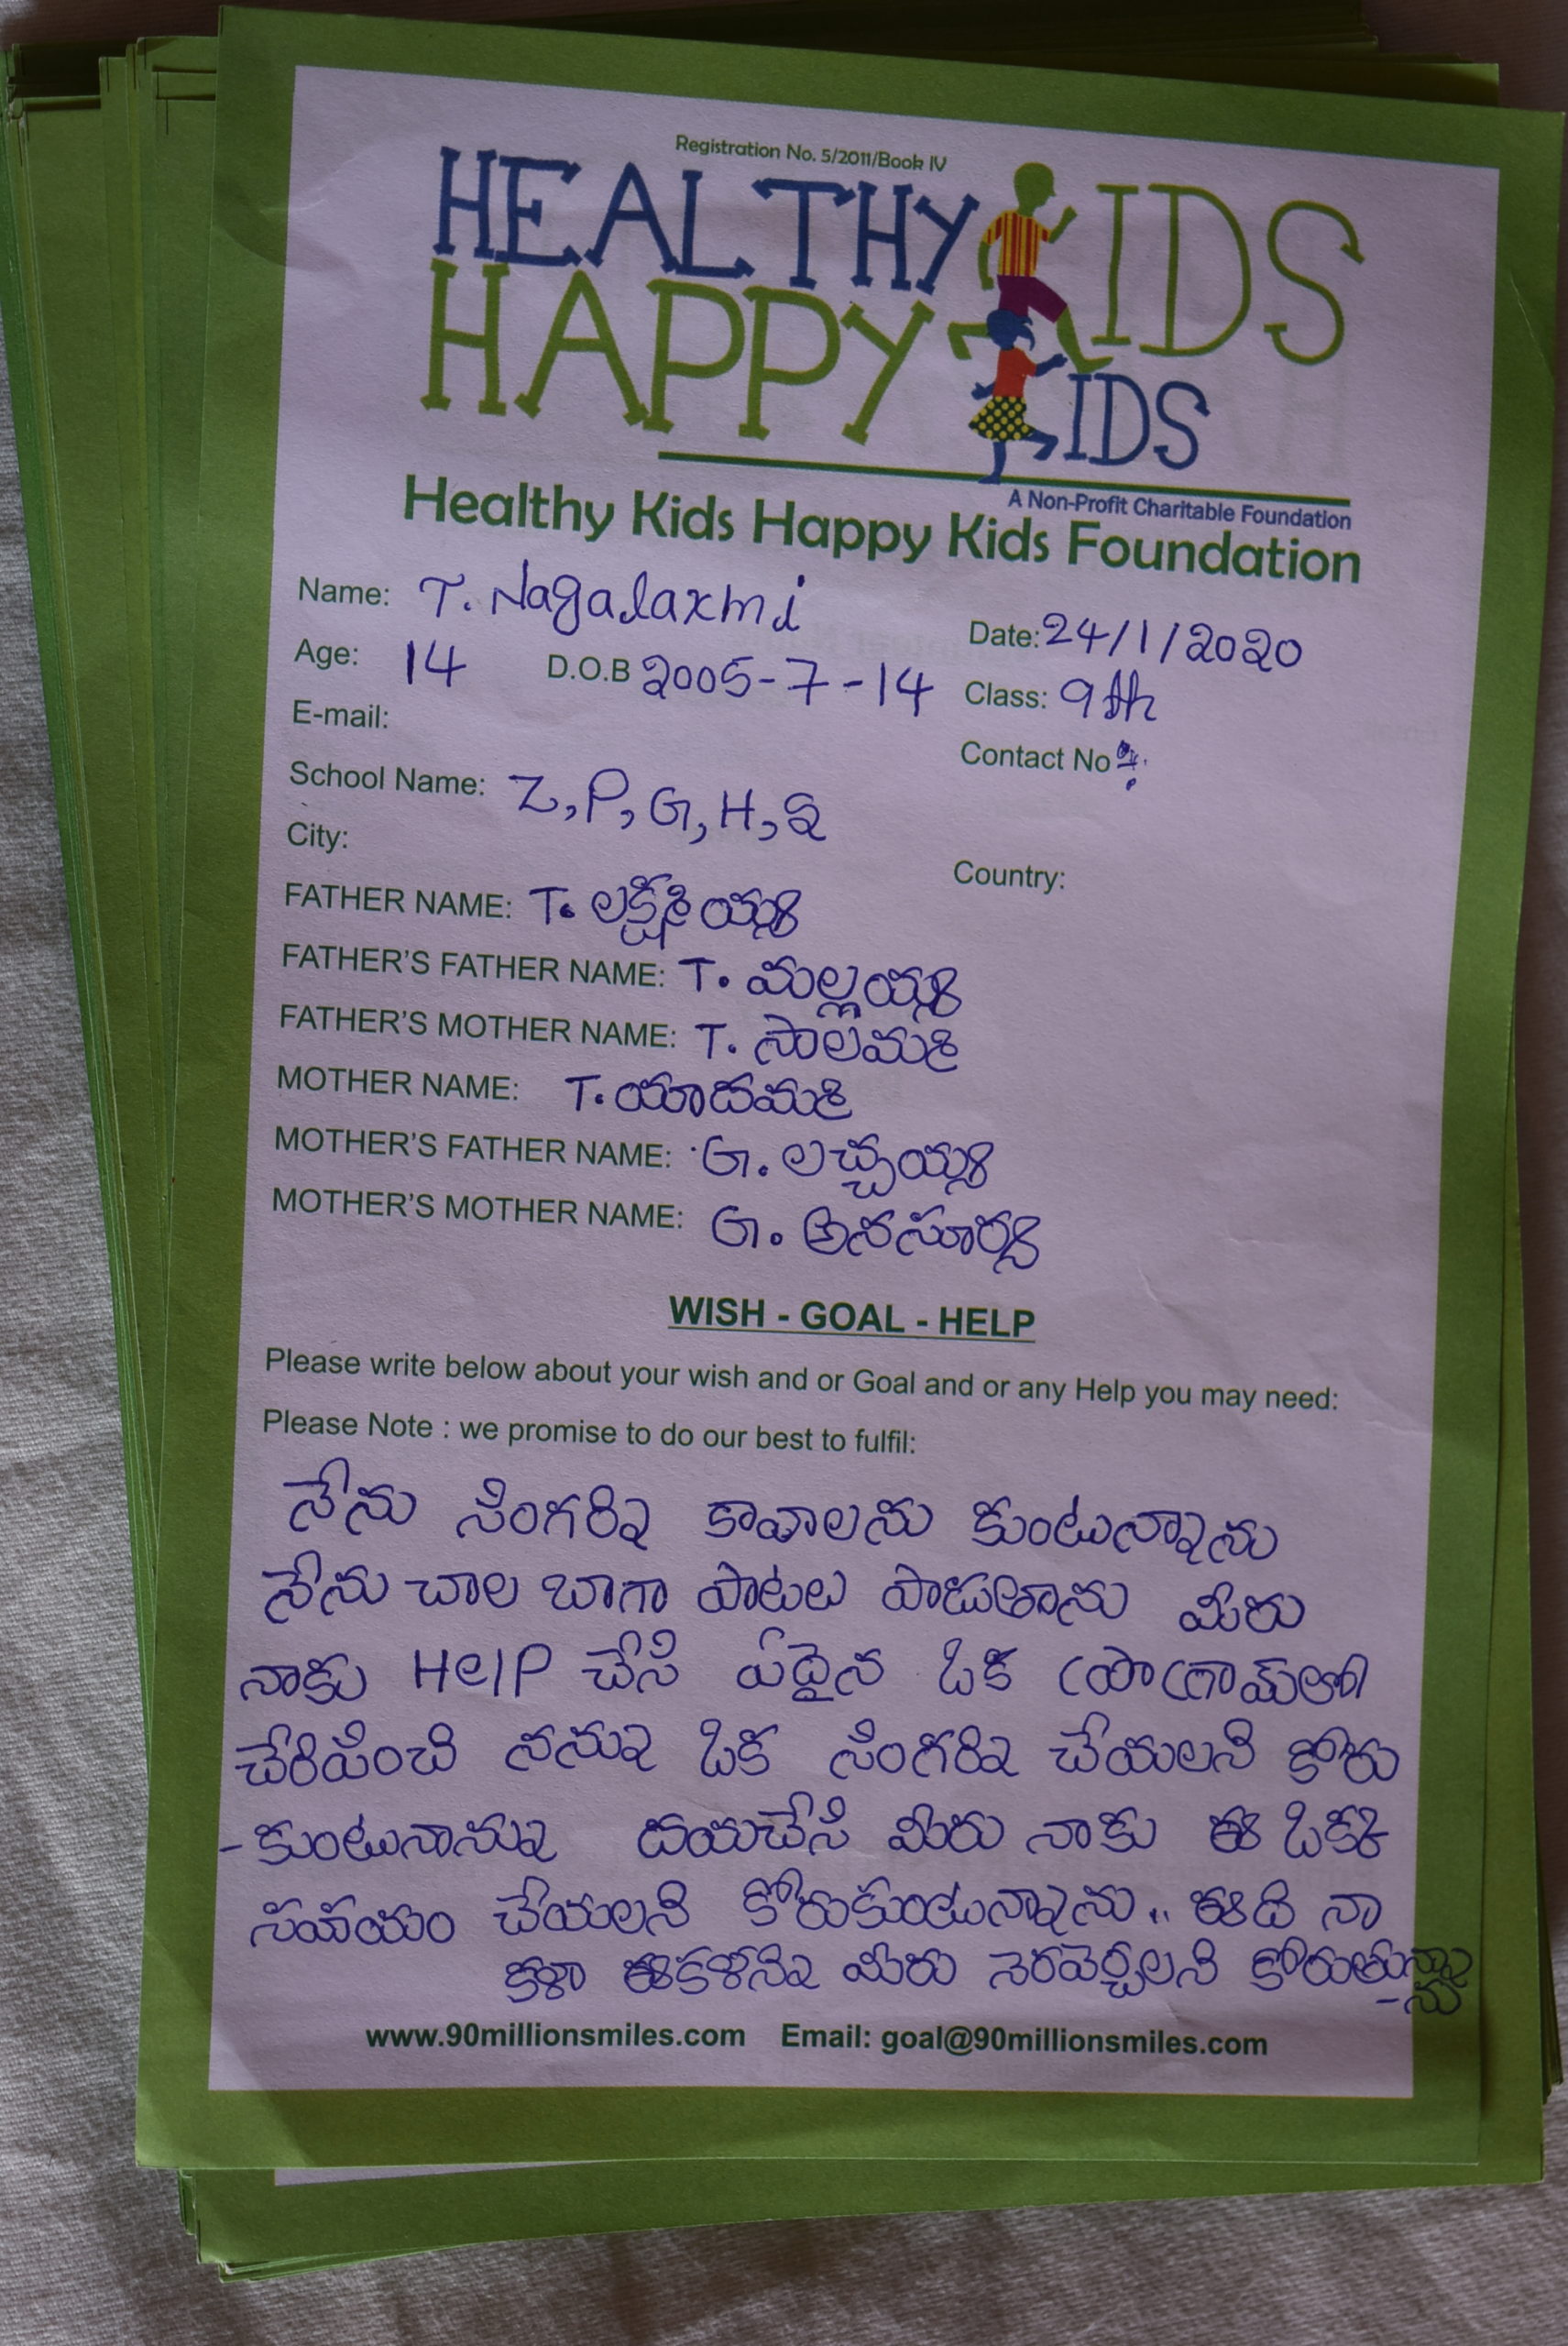 Registration No. 5/2011/Book IV
HEALTHY KIDS
HAPPY KIDS
A Non-Profit Charitable Foundation
Healthy Kids Happy Kids Foundation
Name: T. Nagalaxmi
Date: 24/1/2020
Age: 14 D.O.B 2005-7-14 Class: 9th
E-mail:
Contact No
School Name: Z, P, G, H, S
City:
Country:
FATHER NAME: T. లక్ష్మియ్య
FATHER'S FATHER NAME: T. మల్లయ్య
FATHER'S MOTHER NAME: T. సాలమ్మ
MOTHER NAME: T. యాదమ్మ
MOTHER'S FATHER NAME: G. లచ్చయ్య
MOTHER'S MOTHER NAME: G. అనసూర్య
WISH - GOAL - HELP
Please write below about your wish and or Goal and or any Help you may need:
Please Note : we promise to do our best to fulfil:
నేను సింగర్ని కావాలను కుంటున్నాను
నేను చాల బాగా పాటలు పాడుతాను మీరు
నాకు HelP చేసి ఏదైన ఒక ప్రొగ్రామ్‌లో
చేరిపించి నన్ను ఒక సింగర్ని చేయలని కోరు
-కుంటునాన్ను దయచేసి మీరు నాకు ఈ ఒక్క
సహయం చేయలని కోరుకుంటున్నాను.. ఈది నా
కళా ఈకళన్ని మీరు నెరవెర్చలని కోరుతున్నా
-ను
www.90millionsmiles.com Email: goal@90millionsmiles.com